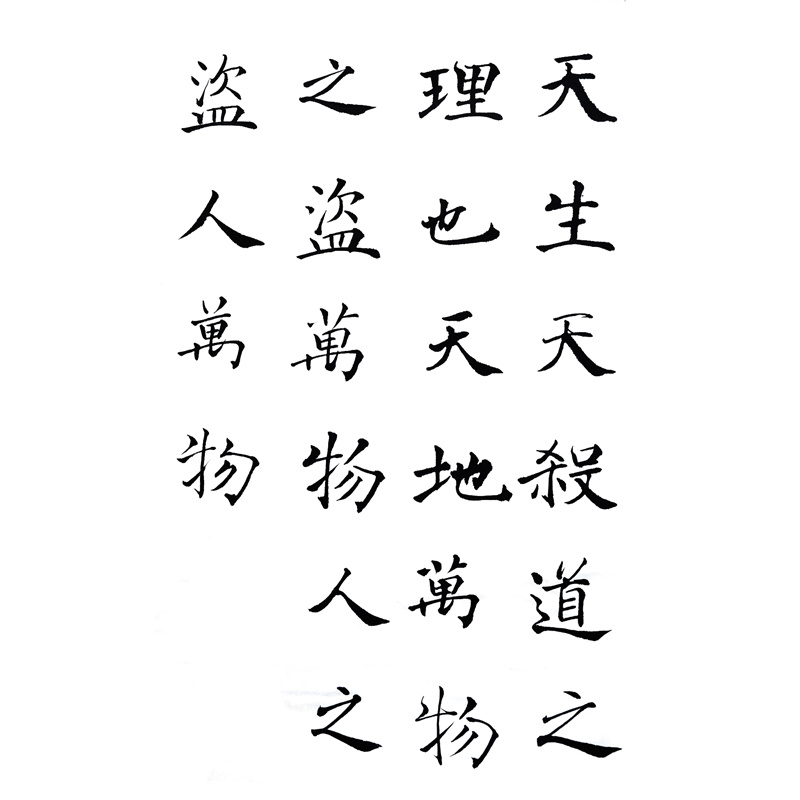 天生天殺道之
理也天地萬物
之盜萬物人之
盜人萬物